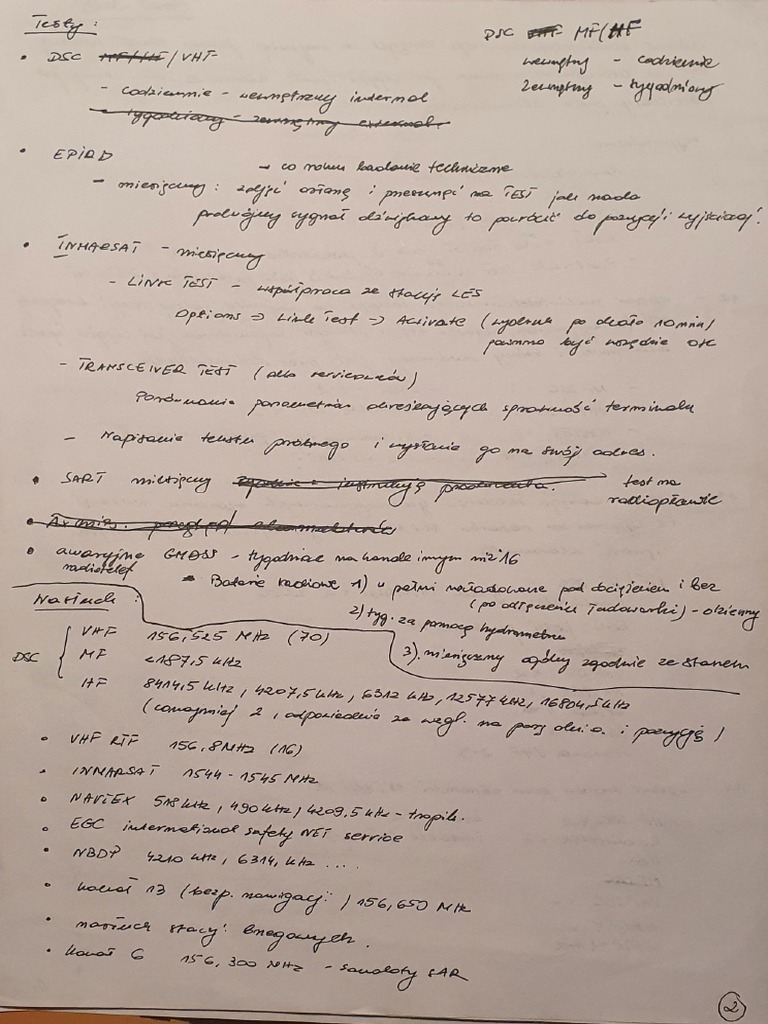 Testy:
DSC ~~VHF~~ MF/HF
wewnętrzny - codziennie
Zewnętrzny - tygodniowy
• DSC ~~MF/HF~~ / VHF
- codziennie - wewnętrzny internal
~~- tygodniowy - zewnętrzny external.~~
• EPIRB
→ co roku badanie techniczne
- miesięczny: zdjąć osłonę i przesunąć na TEST jak nada
próbujny sygnał dźwiękowy to powrócić do pozycji wyjściowej.
• INMARSAT - miesięczny
- LINK TEST - współpraca ze stacją LES
Options → Link Test → Activate (wydruk po około 10 min/
powinno być wszędzie OK
- TRANSCEIVER TEST (dla serwisantów)
Porównanie parametrów określających sprawność terminalu
- Napisanie tekstu próbnego i wysłanie go na swój adres.
• SART miesięczny ~~zgodnie z instrukcją producenta.~~ test na
radiopławie
• awaryjne GMDSS - tygodniae na kanale innym niż 16
radiotelef
• Badanie radiowe 1) u pełni naładowane pod obciążeniem i bez
(po odłączeniu ładowarki) - dzienny
2) tyg. za pomocą hydrometru
3). miesięczny ogólny zgodnie ze stanem
Nasłuch:
DSC { VHF 156,525 MHz (70)
MF 2187,5 kHz
HF 8414,5 kHz, 4207,5 kHz, 6312 kHz, 12577 kHz, 16804,5 kHz
(conajmniej 2, odpowiednie ze wzgl. na porę dnia i pozycję)
• VHF RTF 156,8 MHz (16)
• INMARSAT 1544 - 1545 MHz
• NAVTEX 518 kHz, 490 kHz, 4209,5 kHz - tropik.
• EGC international safety NET service
• NBDP 4210 kHz, 6314, kHz ....
• kanał 13 (bezp. nawigacji) 156,650 MHz
• nasłuch stacji brzegowych.
• kanał 6 156,300 MHz - samoloty SAR
2